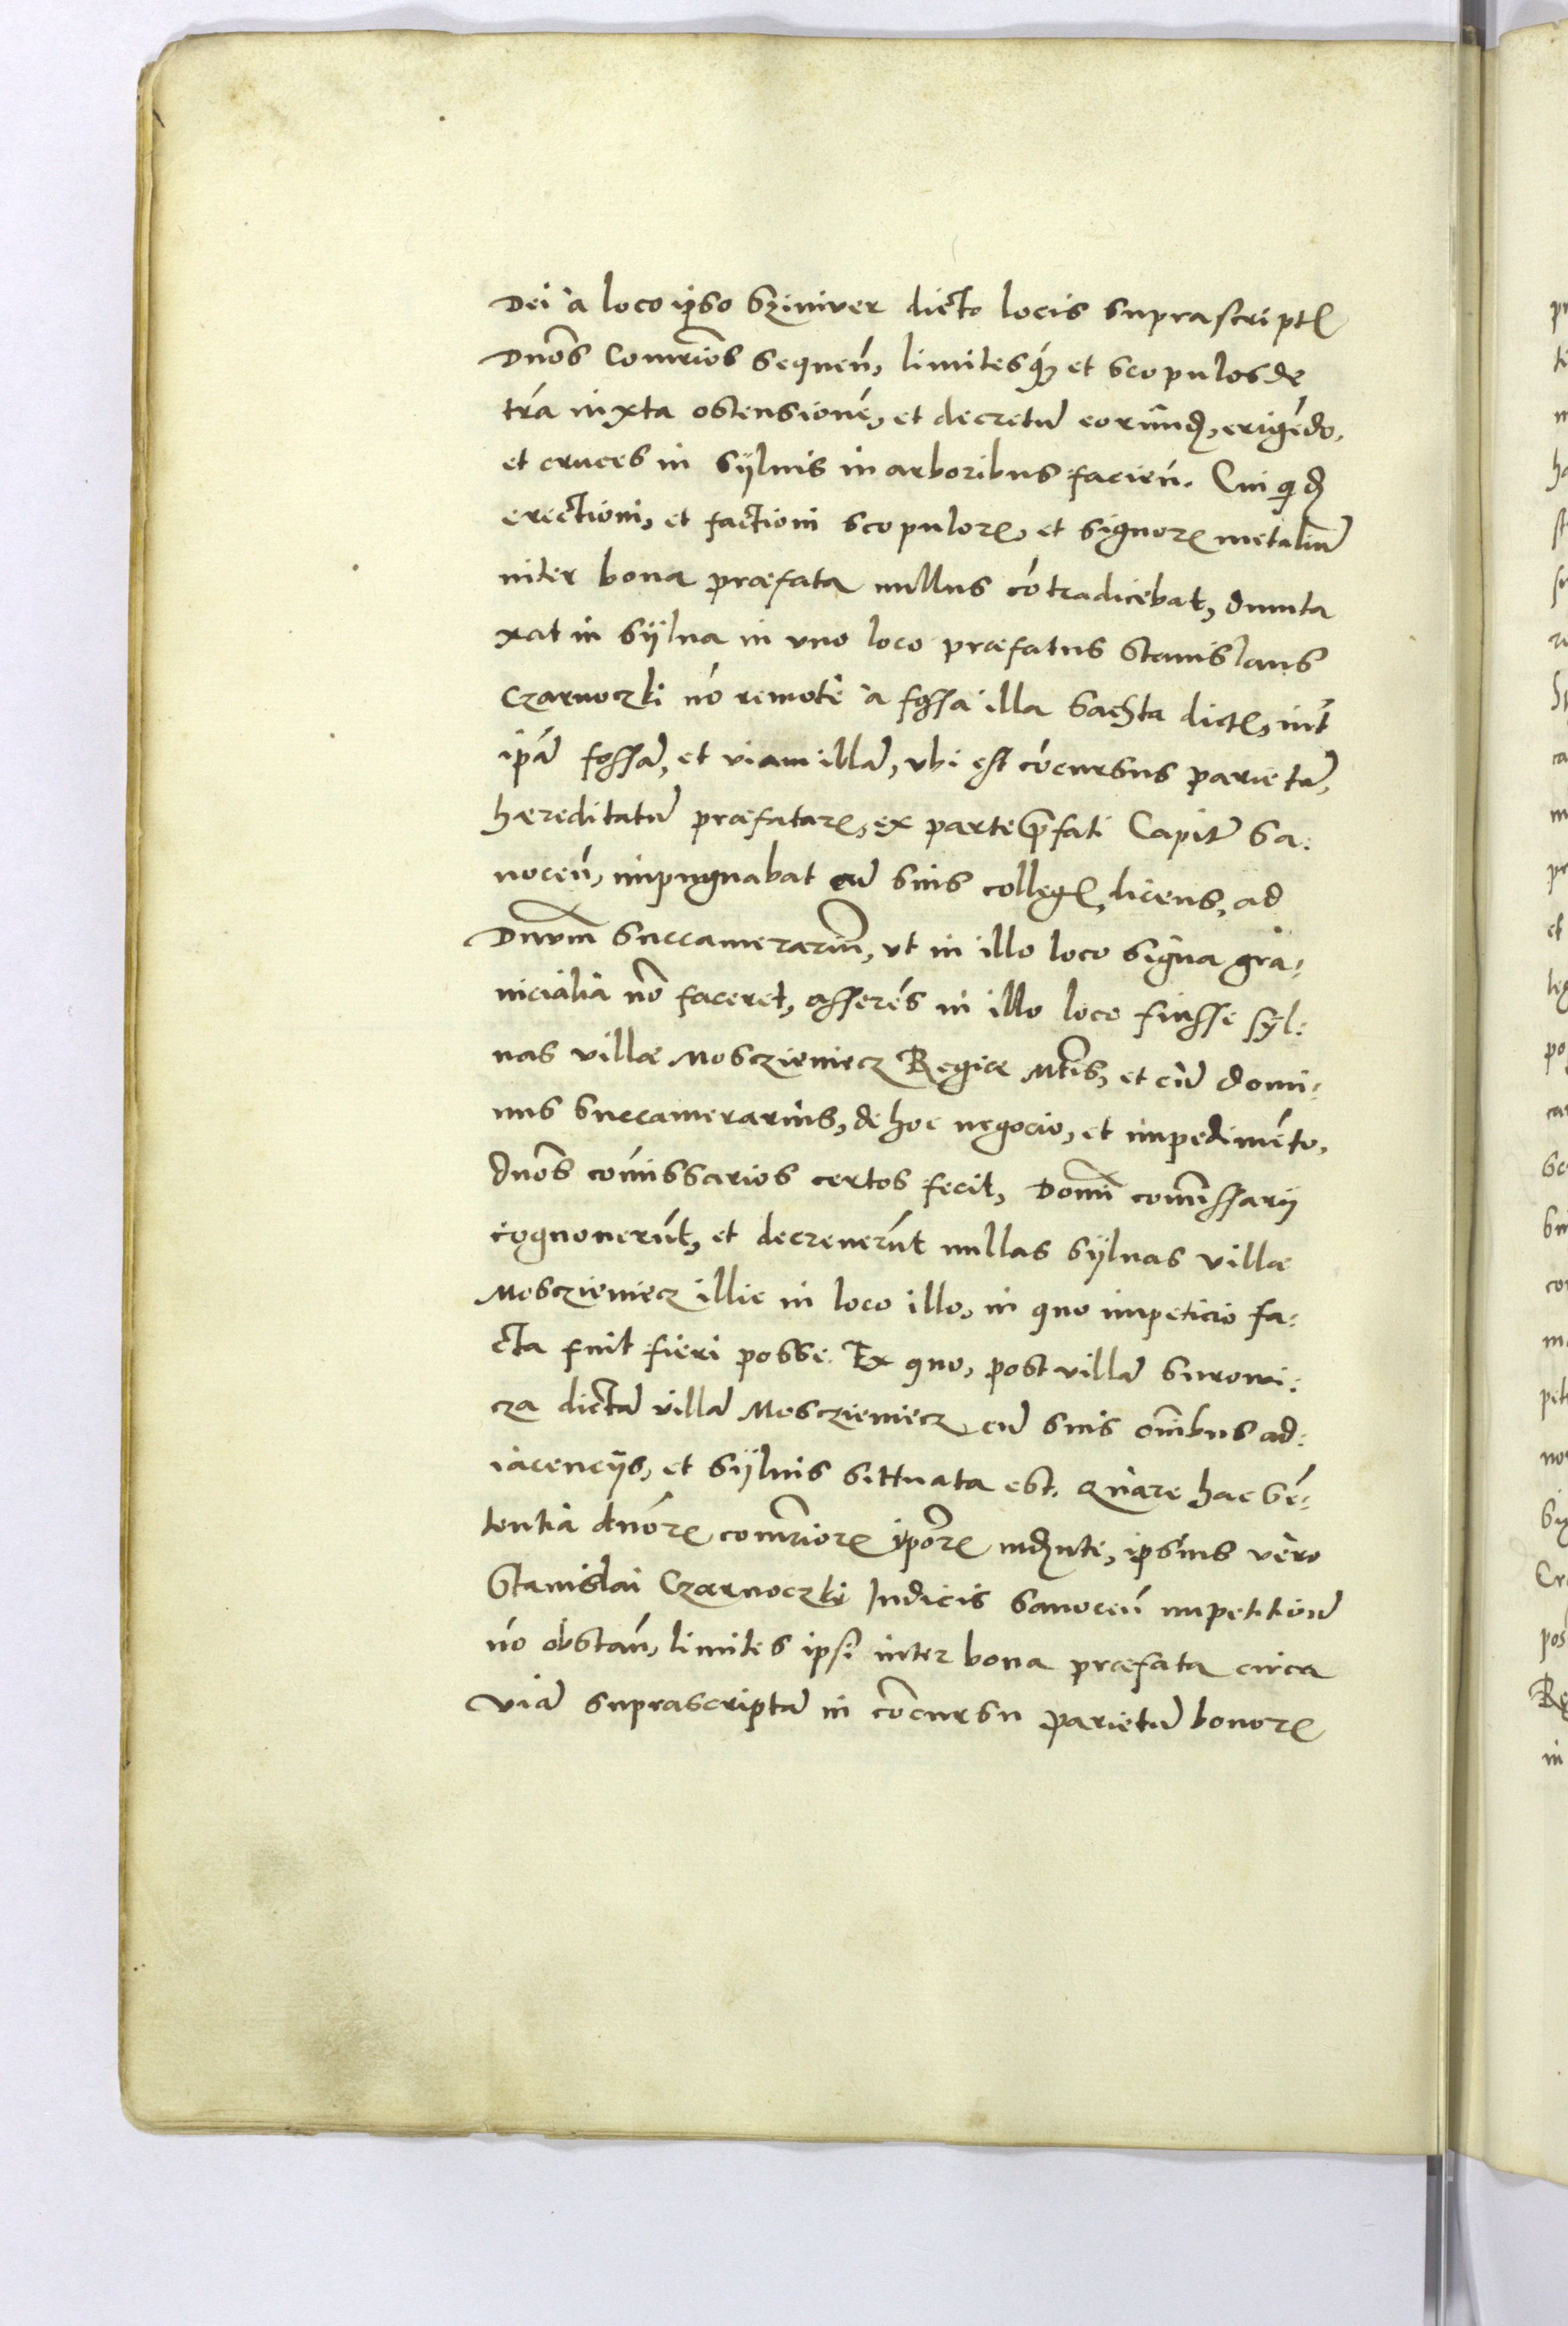 Dei à loco ipso Sziniver dicto locis suprascriptꝭ
Dnos Comrios sequeñ, limitesqꝫ et scopulos de
tra iuxta ostensionē, et decretū eorundꝫ, erigēdo,
et cruces in sÿluis in arboribus facieñ. Cui qdꝫ
erectioni, et factioni scopuloꝝ, et signoꝝ metaliū
inter bona præfata nullus cōtradicebat, dunta
xat in sÿlua in vno loco præfatus Stanislaus
Czarnoczki nō remotè à fossa illa Sachta dictꝭ, int
ipā fossā, et viam illā, vbi est cōcursus parietū,
hæreditatū præfataꝝ, ex parte p̄fati Capitū Sa:
noceñ, impugnabat cū suis collegꝭ, dicens, ad
Dnum Succamerariū, vt in illo loco signa gra:
nicialia nō faceret, asserēs in illo loco fuisse sÿl:
uas villæ Mosczieniecz Regiæ Mtis, et cū domi:
nus Succamerarius, de hoc negocio, et impedimēto,
dnos cōmissarios certos fecit, Domi comissarij
cognouerūt, et decreuerūt nullas sÿluas villæ
Mosczieniecz illic in loco illo, in quo impeticio fa:
cta fuit fieri posse. Ex quo, post villā Surowi:
cza dictā villā Mosczieniecz cū suis omibus ad:
iacencijs, et sÿluis sittuata est. Quare hac sē:
tentia dnoꝝ comrioꝝ ipoꝝ mdꝫnte, ipsius vero
Stanislai Czarnoczki Iudicis Sanoceñ impetitioē
nō obstañ, limites ipsi inter bona præfata circa
viā suprascriptā in cōcursu parietū bonoꝝ